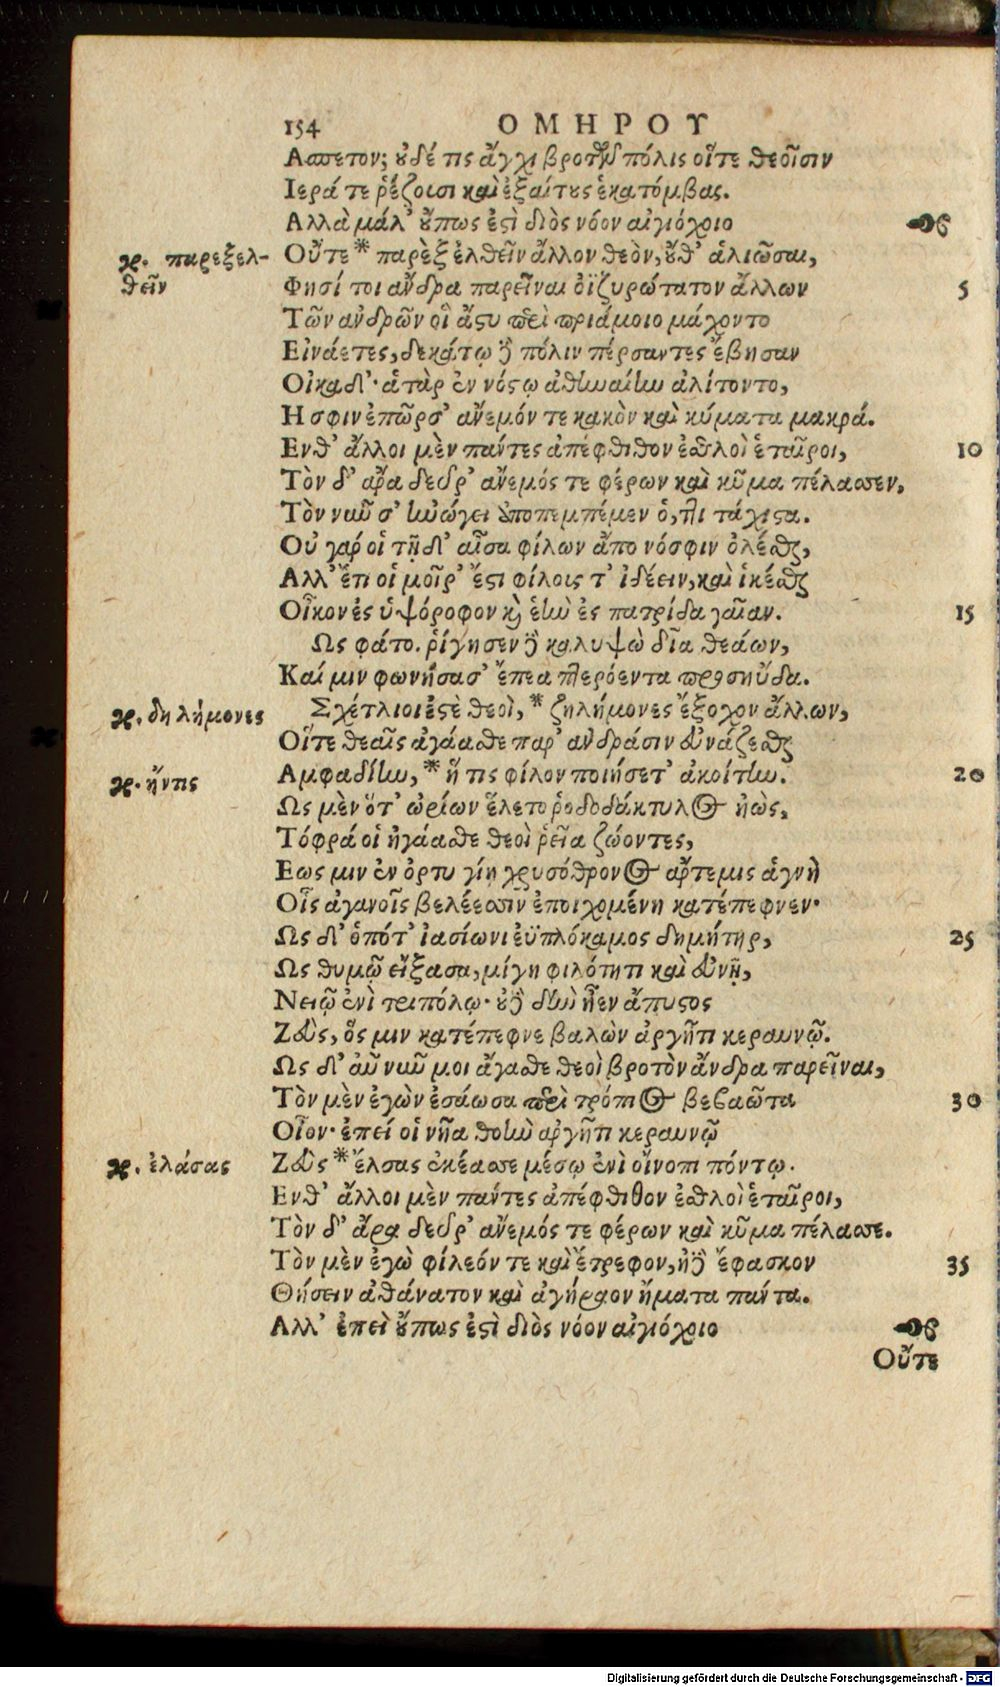 154 ΟΜΗΡΟΥ
Ασπετον; ȣδέ τις ἄγχι βροτῶν πόλις οἵτε θεοῖσιν
Ιερά τε ῥέζουσι καὶ ἐξαίτȣς ἑκατόμβας.
Αλλὰ μάλ' ȣ̓́πως ἐστὶ διὸς νόον αἰγιόχοιο
ϗ. παρεξελ-
θεῖν
Οὔτε * παρὲξ ἐλθεῖν ἄλλον θεὸν, ȣ̓́θ' ἁλιῶσαι,
Φησί τοι ἄνδρα παρεῖναι ὀϊζυρώτατον ἄλλων 5
Τῶν ἀνδρῶν οἳ ἄστυ περὶ πριάμοιο μάχοντο
Εἰνάετες, δεκάτῳ δὲ πόλιν πέρσαντες ἔβησαν
Οἴκαδ'· ἀτὰρ ἐν νόστῳ ἀθηναίην ἀλίτοντο,
Η σφιν ἐπῶρσ' ἄνεμόν τε κακὸν καὶ κύματα μακρά.
Ενθ' ἄλλοι μὲν πάντες ἀπέφθιθον ἐσθλοὶ ἑταῖροι, 10
Τὸν δ' ἄρα δεῦρ' ἄνεμός τε φέρων καὶ κῦμα πέλασσεν,
Τὸν νῦν σ' ἠνώγει ἀποπεμπέμεν ὅ,τι τάχιστα.
Οὐ γάρ οἱ τῇδ' αἶσα φίλων ἄπο νόσφιν ὀλέσθαι,
Αλλ' ἔτι οἱ μοῖρ' ἔστι φίλοις τ' ἰδέειν, καὶ ἱκέσθαι
Οἶκον ἐς ὑψόροφον καὶ ἑὴν ἐς πατρίδα γαῖαν. 15
Ως φάτο. ῥίγησεν δὲ καλυψὼ δῖα θεάων,
Καί μιν φωνήσασ' ἔπεα πτερόεντα προσηύδα.
ϗ. δηλήμονες
Σχέτλιοι ἐστὲ θεοὶ, * ζηλήμονες ἔξοχον ἄλλων,
Οἵτε θεαῖς ἀγάασθε παρ' ἀνδράσιν εὐνάζεσθαι
ϗ. ἤντις
Αμφαδίην, * ἥ τις φίλον ποιήσετ' ἀκοίτην. 20
Ως μὲν ὅτ' ὠρίων ἕλετο ῥοδοδάκτυλος ἠὼς,
Τόφρά οἱ ἠγάασθε θεοὶ ῥεῖα ζώοντες,
Εως μιν ἐν ὀρτυγίῃ χρυσόθρονος ἄρτεμις ἁγνὴ
Οἷς ἀγανοῖς βελέεσσιν ἐποιχομένη κατέπεφνεν·
Ως δ' ὁπότ' ἰασίωνι ἐϋπλόκαμος δημήτηρ, 25
Ως θυμῷ εἴξασα, μίγη φιλότητι καὶ εὐνῇ,
Νειῷ ἐνὶ τριπόλῳ· ȣ̓δὲ δὴν ἦεν ἄπυστος
Ζεὺς, ὅς μιν κατέπεφνε βαλὼν ἀργῆτι κεραυνῷ.
Ως δ' αὖ νῦν μοι ἄγασθε θεοὶ βροτὸν ἄνδρα παρεῖναι,
Τὸν μὲν ἐγὼν ἐσάωσα περὶ τρόπιος βεβαῶτα 30
Οἶον· ἐπεί οἱ νῆα θοὴν ἀργῆτι κεραυνῷ
ϗ. ἐλάσας
Ζεὺς * ἔλσας ἐκέασσε μέσῳ ἐνὶ οἴνοπι πόντῳ.
Ενθ' ἄλλοι μὲν πάντες ἀπέφθιθον ἐσθλοὶ ἑταῖροι,
Τὸν δ' ἄρα δεῦρ' ἄνεμός τε φέρων καὶ κῦμα πέλασσε.
Τὸν μὲν ἐγὼ φίλεόν τε καὶ ἔτρεφον, ἠδὲ ἔφασκον 35
Θήσειν ἀθάνατον καὶ ἀγήραον ἤματα πάντα.
Αλλ' ἐπεὶ ȣ̓́πως ἐστὶ διὸς νόον αἰγιόχοιο
Οὔτε
Digitalisierung gefördert durch die Deutsche Forschungsgemeinschaft - DFG